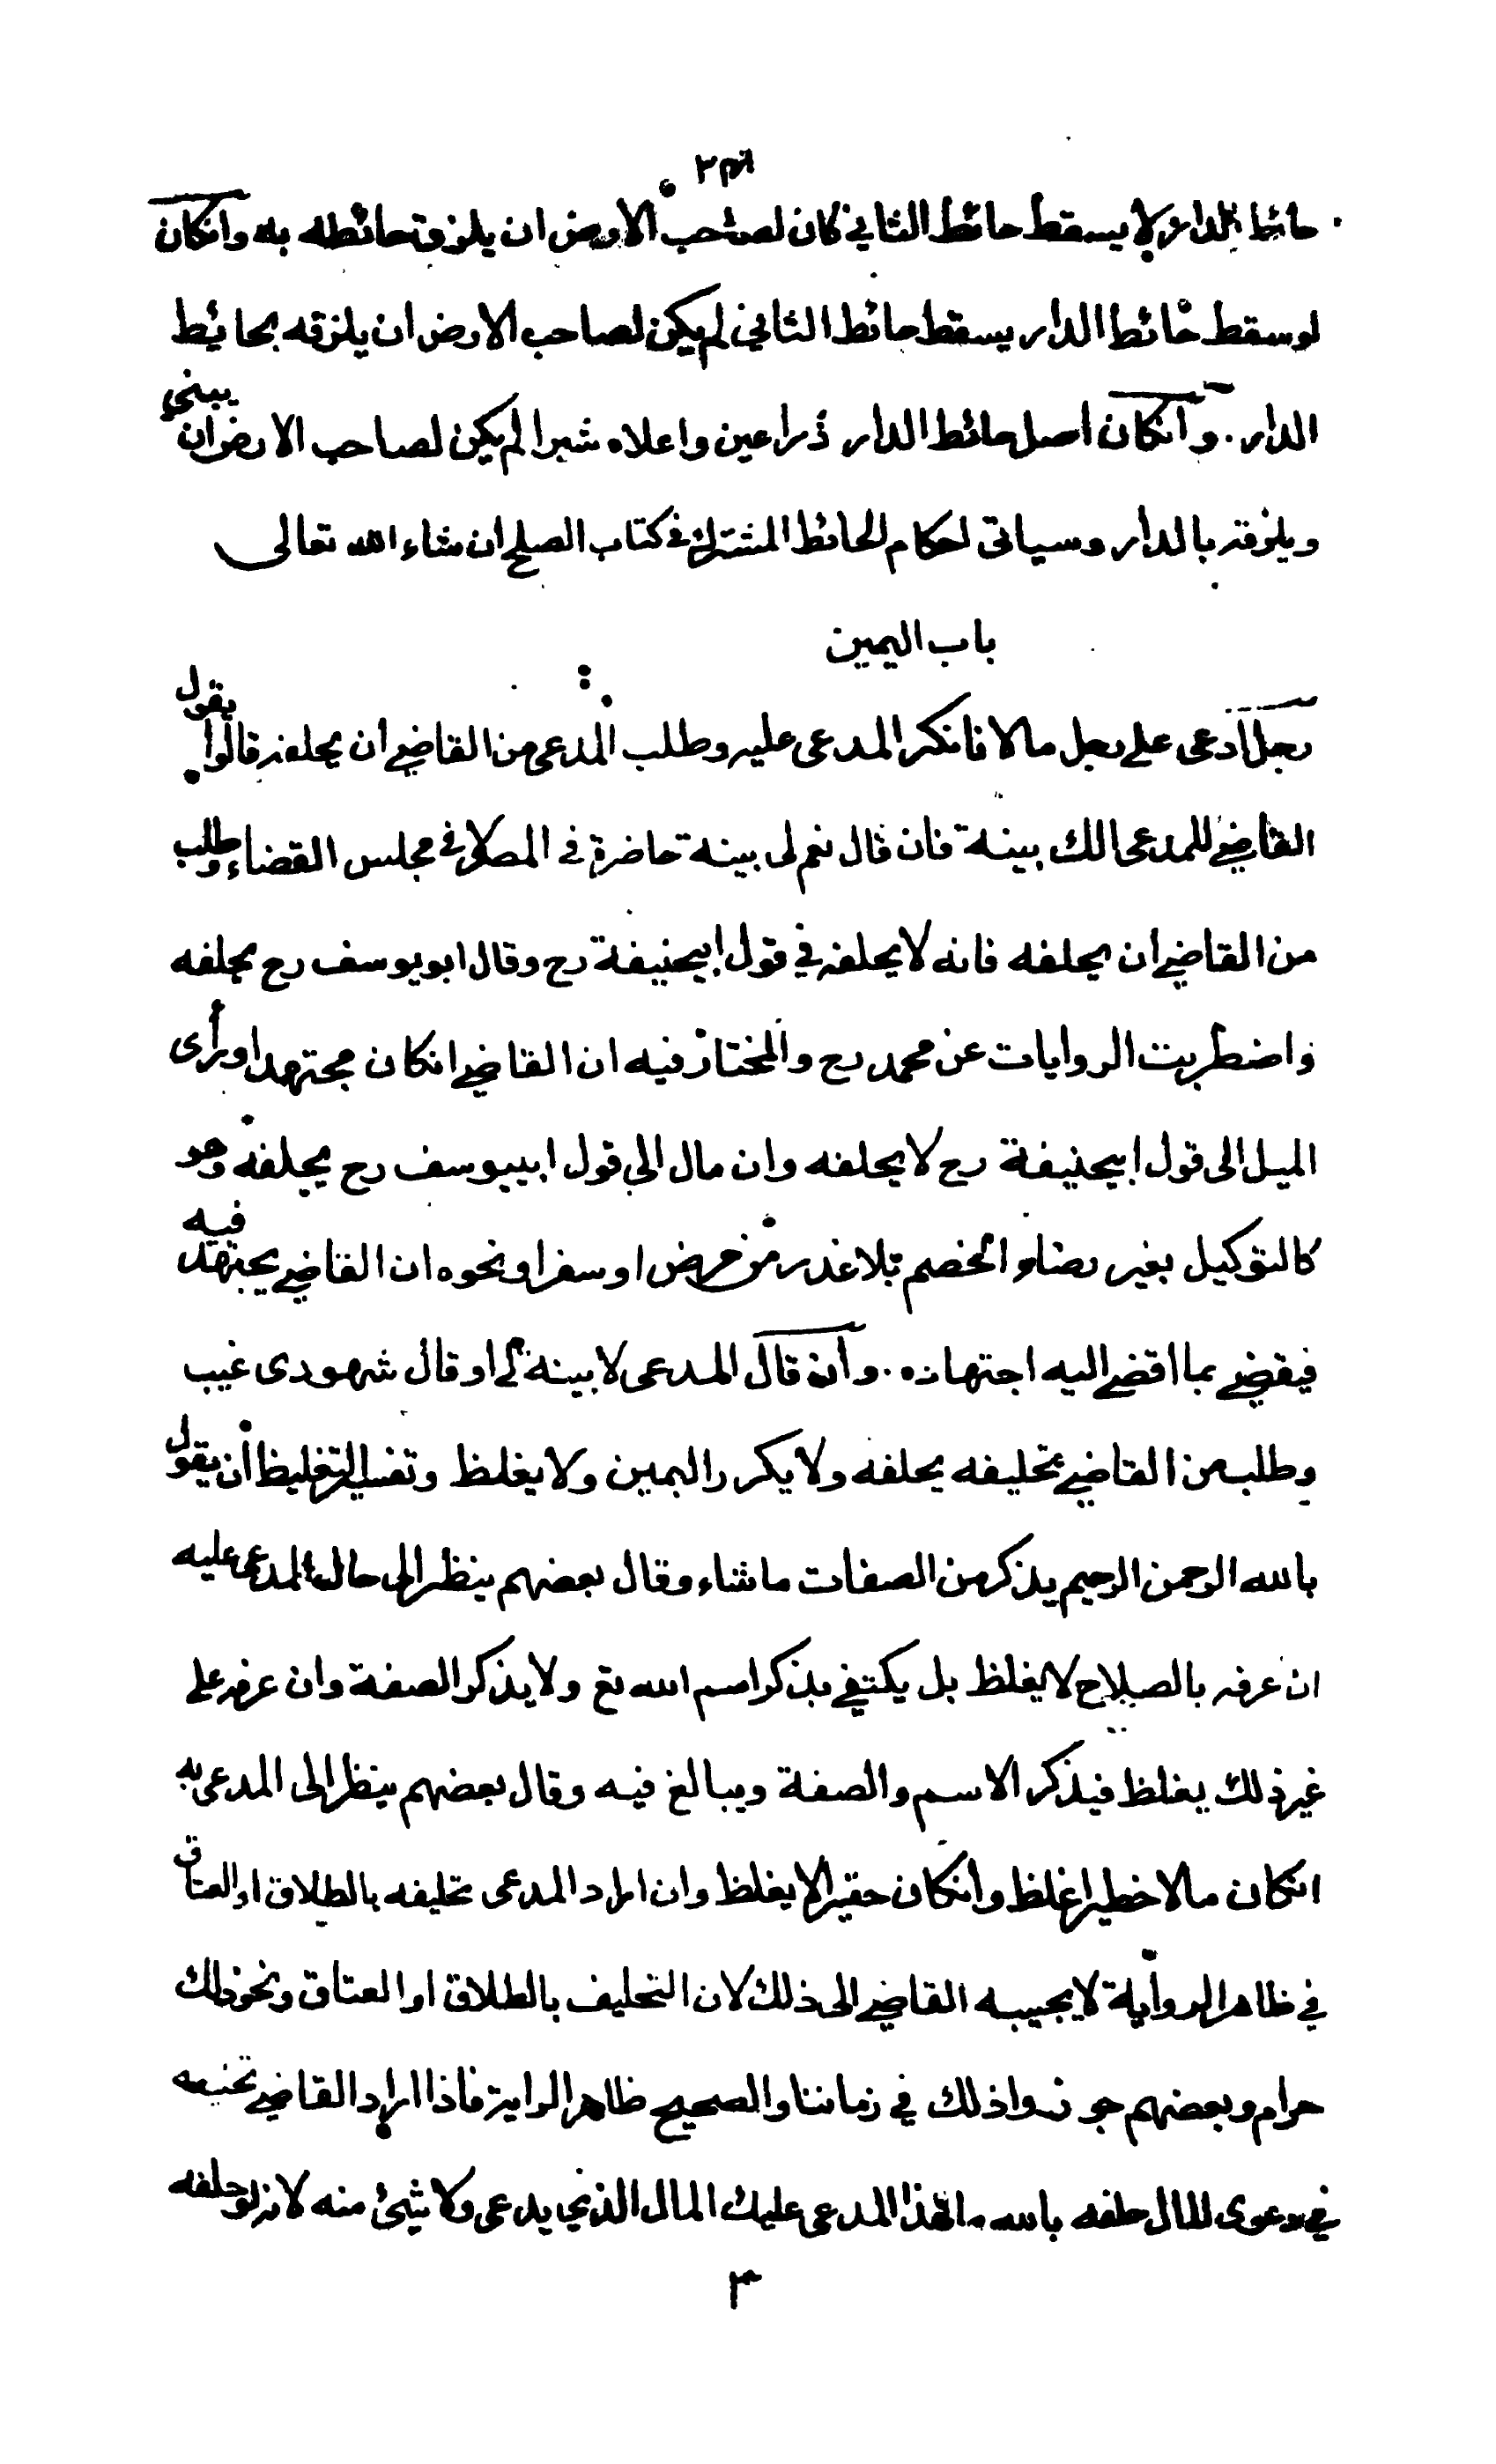 حائط الدار لا يسقط حائط الثاني كان لصاحب الارض ان يلزق حائطه به وانكان
لو سقط حائط الدار يسقط حائط الثاني لم يكن لصاحب الارض ان يلزقه بحائط
الدار . وانكان اصل حائط الدار ذراعين واعلاه شبرا لم يكن لصاحب الارض ان يبني
ويلزقه بالدار وسياتى احكام الحائط المشترك في كتاب الصلح ان شاء الله تعالى
باب اليمين
رجل ادعى على رجل مالا فانكر المدعى عليه وطلب المدعى من القاضي ان يحلفه قالوا يقول
القاضي للمدعى الك بينة فان قال نعم لى بينة حاضرة في المصر لا في مجلس القضاء وطلب
من القاضي ان يحلفه فانه لا يحلفه في قول ابيحنيفة رح وقال ابو يوسف رح يحلفه
واضطربت الروايات عن محمد رح والمختار فيه ان القاضي انكان مجتهدا ورأى
الميل الى قول ابيحنيفة رح لا يحلفه وان مال الى قول ابييوسف رح يحلفه وهو
كالتوكيل بغير رضاء الخصم بلا عذر من مرض او سفر او نحوه ان القاضي يجتهد فيه
فيقضي بما افضى اليه اجتهاده . وان قال المدعى لا بينة لي او قال شهودى غيب
وطلب من القاضي تحليفه يحلفه ولا يكرر اليمين ولا يغلظ وتفسير التغليظ ان يقول
بالله الرحمن الرحيم يذكر من الصفات ما شاء وقال بعضهم ينظر الى حال المدعى عليه
ان عرفه بالصلاح لا يغلظ بل يكتفي بذكر اسم الله تع ولا يذكر الصفة وان عرفه على
غير ذلك يغلظ فيذكر الاسم والصفة ويبالغ فيه وقال بعضهم ينظر الى المدعى به
انكان مالا خطيرا غلظ وانكان حقيرا لا يغلظ وان اراد المدعى تحليفه بالطلاق او العتاق
في ظاهر الرواية لا يجيبه القاضي الى ذلك لان التحليف بالطلاق او العتاق ونحو ذلك
حرام وبعضهم جوزوا ذلك في زماننا والصحيح ظاهر الرواية فاذا اراد القاضي
في دعوى المال حلفه بالله ما لهذا المدعى عليك المال الذي يدعى ولا شئ منه لانه لو حلفه
٣